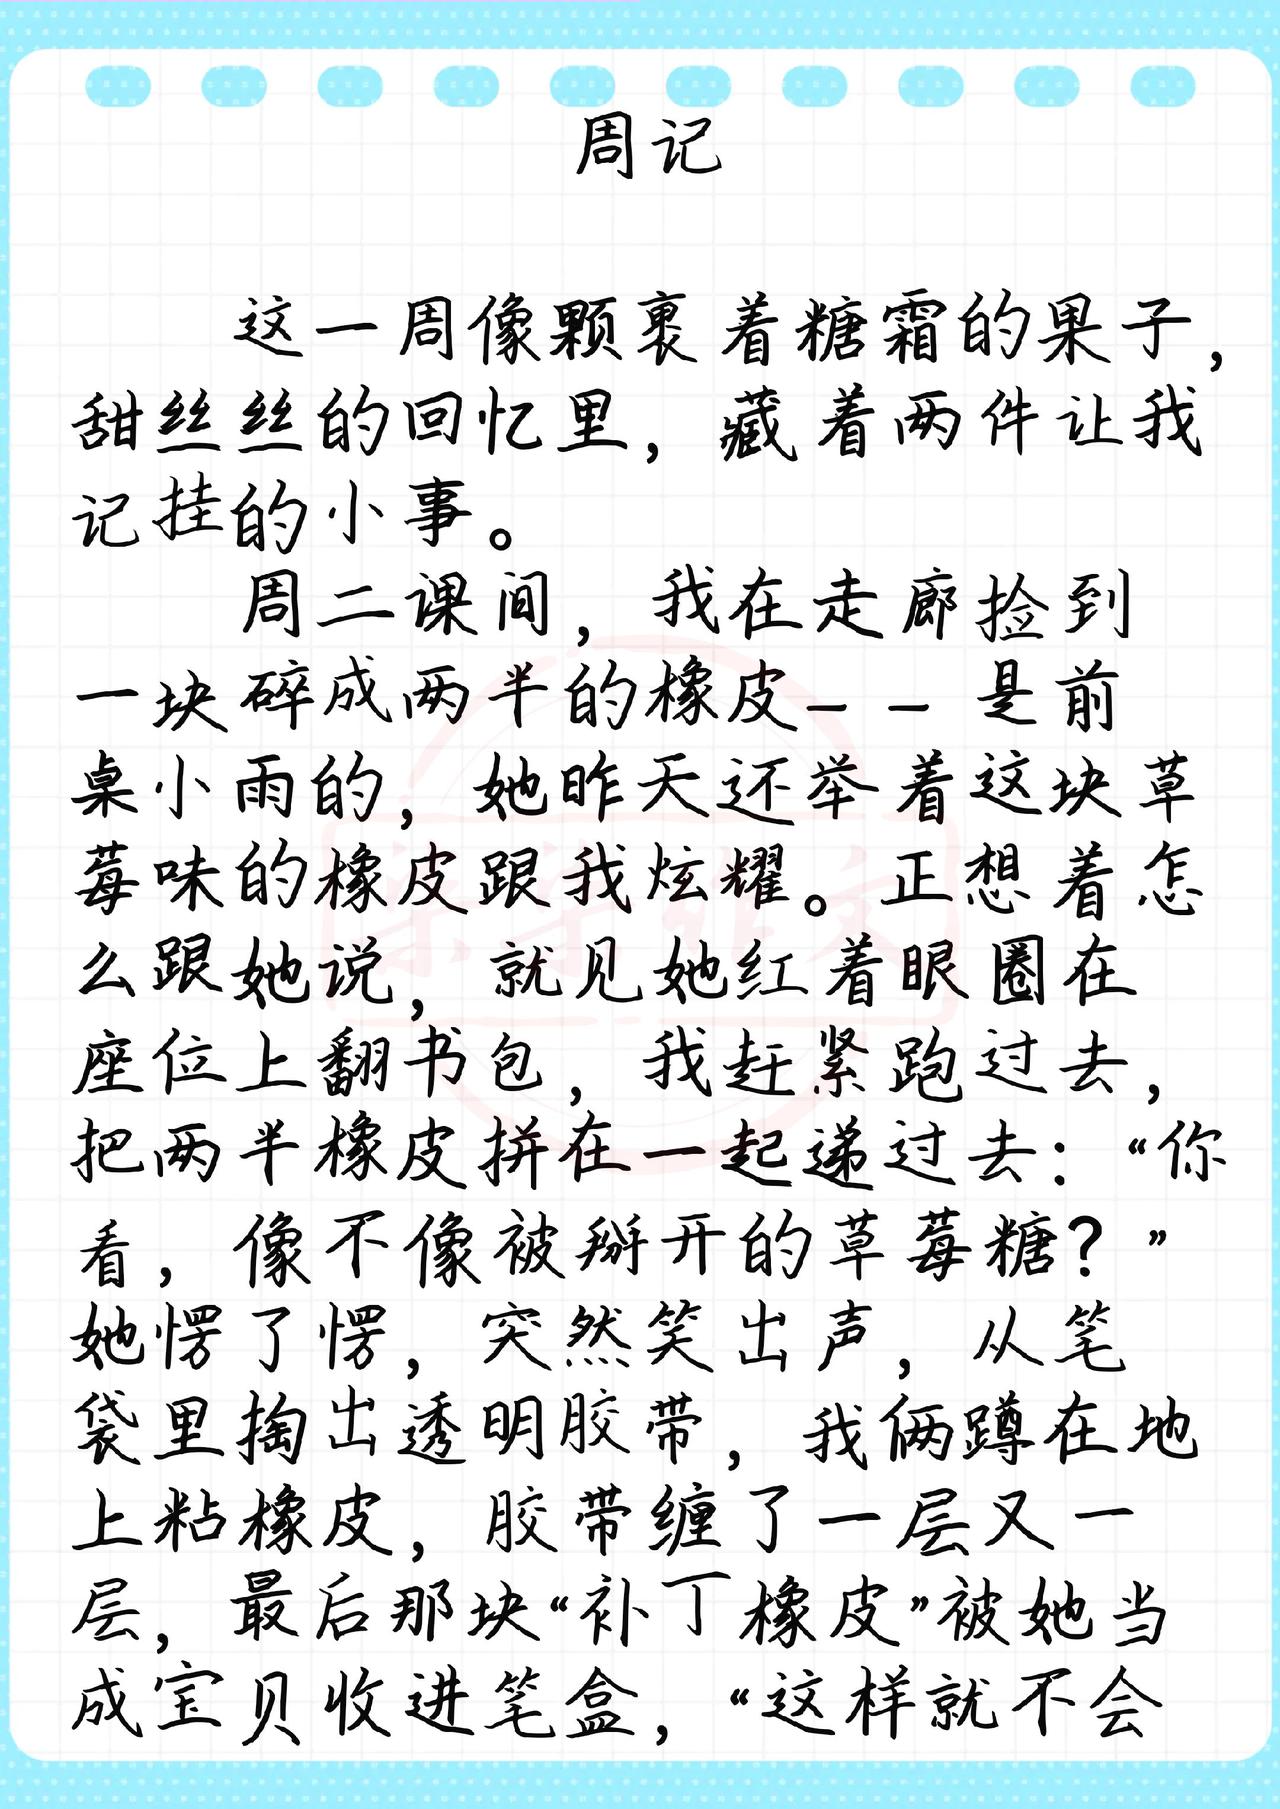 周记
这一周像颗裹着糖霜的果子,
甜丝丝的回忆里,藏着两件让我
记挂的小事。
周二课间,我在走廊捡到
一块碎成两半的橡皮——是前
桌小雨的,她昨天还举着这块草
莓味的橡皮跟我炫耀。正想着怎
么跟她说,就见她红着眼圈在
座位上翻书包,我赶紧跑过去,
把两半橡皮拼在一起递过去:“你
看,像不像被掰开的草莓糖?”
她愣了愣,突然笑出声,从笔
袋里掏出透明胶带,我俩蹲在地
上粘橡皮,胶带缠了一层又一
层,最后那块“补丁橡皮”被她当
成宝贝收进笔盒,“这样就不会